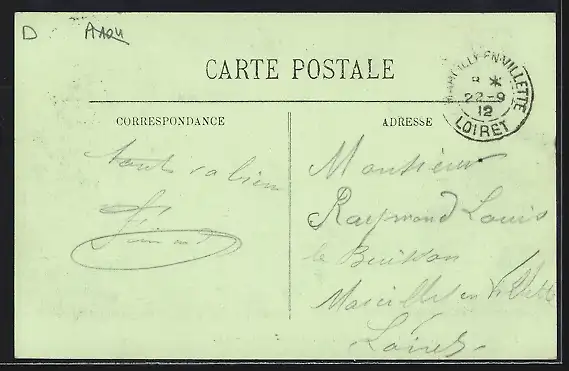 D
CARTE POSTALE
MARCILLY-EN-VILLETTE
8 *
22-9
12
LOIRET
CORRESPONDANCE
ADRESSE
tout va bien
Monsieur
Raymond Louis
le Buisson
Marcilly en Villette
Loiret